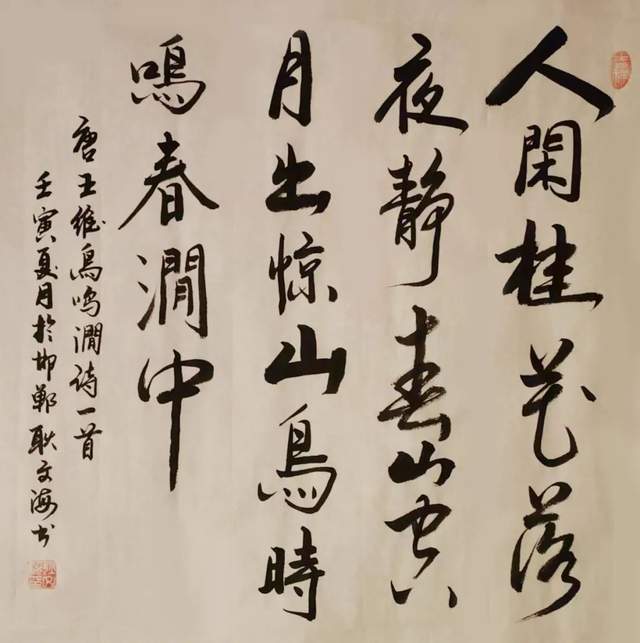 人閑桂花落
夜靜春山空
月出惊山鳥時
鳴春澗中
唐王维鳥鸣澗诗一首
壬寅夏月於邯郸耿文海书